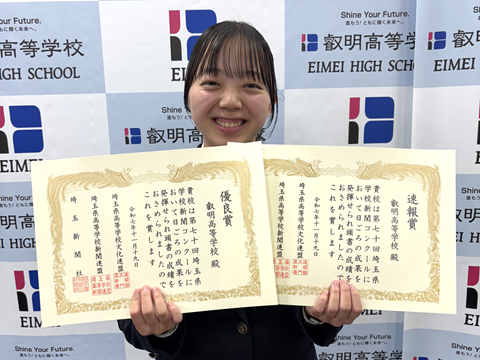 Shine Your Future.
進もう!ともに輝く未来へ。
叡明高等学校
EIMEI HIGH SCHOOL
優良賞
叡明高等学校 殿
貴校は第七十回埼玉県
学校新聞コンクールに
おいて日ごろの成果を
発揮せられ頭書の成績を
おさめられましたので
これを賞します
令和七年十一月十九日
埼玉県高等学校文化連盟
埼玉県高等学校新聞連盟
埼玉新聞社
速報賞
叡明高等学校 殿
貴校は第七十回埼玉県
学校新聞コンクールに
おいて日ごろの成果を
発揮せられ頭書の成績を
おさめられましたので
これを賞します
令和七年十一月十九日
埼玉県高等学校文化連盟
埼玉県高等学校新聞連盟